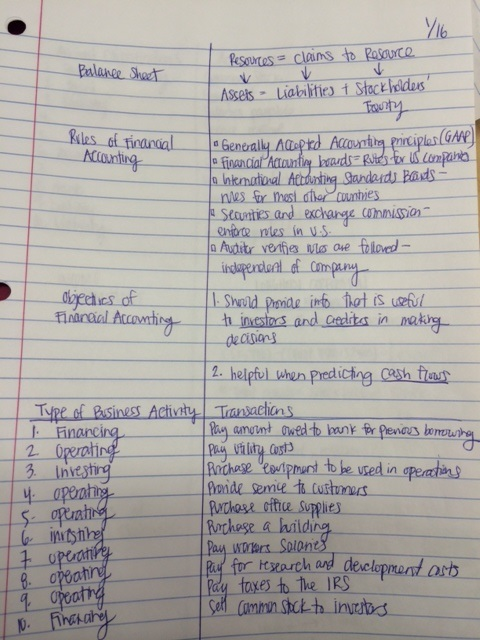 1/16
Balance Sheet
Resources = claims to Resource
Assets = Liabilities + Stockholders'
Equity
Rules of Financial
Accounting
Generally Accepted Accounting principles (GAAP)
Financial Accounting boards = Rules for US companies
International Accounting Standards Boards -
rules for most other countries
Securities and exchange commission -
enforce rules in U.S.
Auditor verifies rules are followed -
independent of company
Objectives of
Financial Accounting
1. Should provide info that is useful
to investors and creditors in making
decisions
2. helpful when predicting cash flows
Type of Business Activity Transactions
1. Financing Pay amount owed to bank for previous borrowing
2 Operating Pay utility costs
3. Investing Purchase equipment to be used in operations
4. operating Provide service to customers
5. operating Purchase office supplies
6. investing Purchase a building
7. operating Pay workers salaries
8. operating Pay for research and development costs
9. operating Pay taxes to the IRS
10. Financing Sell common stock to investors